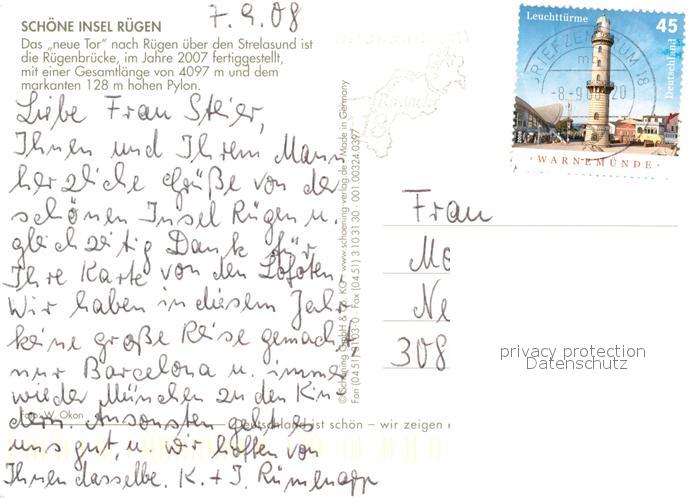 7.9.08
SCHÖNE INSEL RÜGEN
Das „neue Tor" nach Rügen über den Strelasund ist
die Rügenbrücke, im Jahre 2007 fertiggestellt,
mit einer Gesamtlänge von 4097 m und dem
markanten 128 m hohen Pylon.
Liebe Frau Steier,
Ihnen und Ihrem Mann
herzliche Grüße von der
schönen Insel Rügen u.
gleichzeitig Dank für
Ihre Karte von den Lofoten.
Wir haben in diesem Jahr
keine große Reise gemacht,
nur Barcelona u. immer
wieder München zu den Kin
dern. Ansonsten geht es
uns gut, u. wir hoffen von
Ihnen dasselbe. K. + J.
Foto: W. Okon
Deutschland ist schön – wir zeigen
© Schöning GmbH & Co. KG · www.schoening-verlag.de · Made in Germany
Fax (04 51) 3 10 31 30 · 001 00324 0397
Leuchttürme 45
Deutschland
BRIEFZENTRUM 18
-8.-9.08 20
· WARNEMÜNDE ·
Frau
Me
Ne
308
privacy protection
Datenschutz